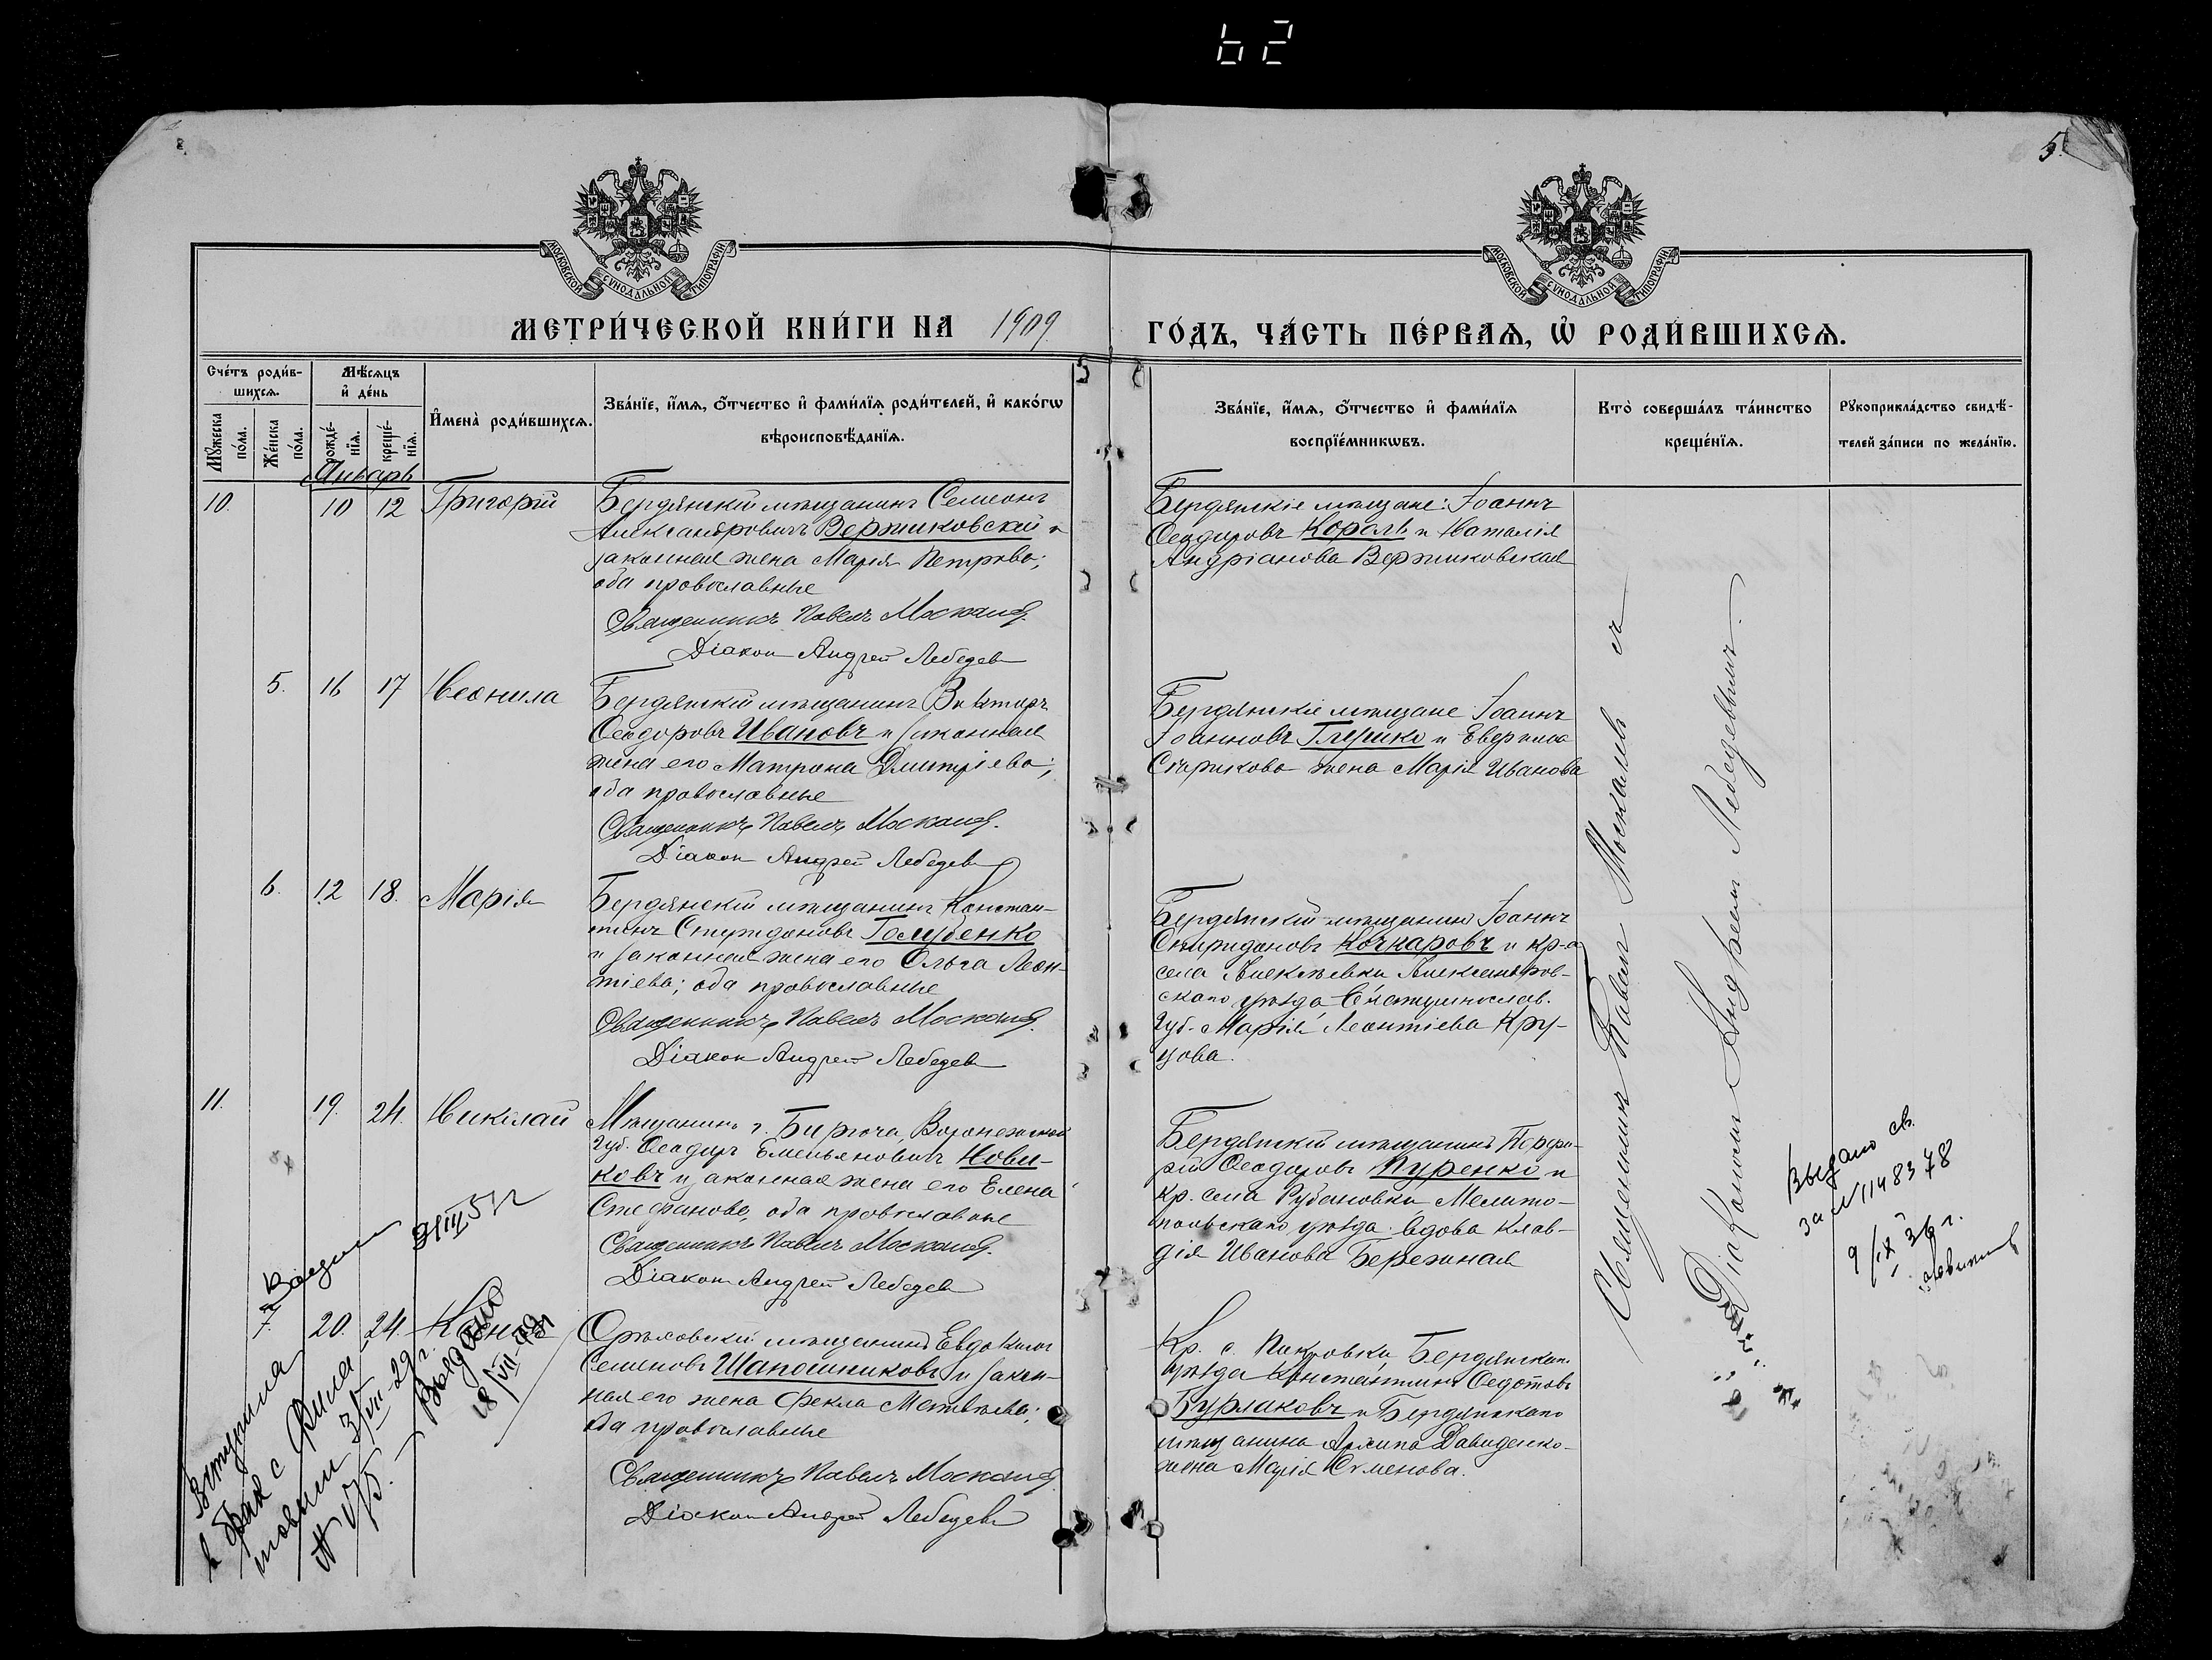 62
5.
МОСКОВСКОЙ СѴНОДАЛЬНОЙ ТИПОГРАФІИ
МОСКОВСКОЙ СѴНОДАЛЬНОЙ ТИПОГРАФІИ
МЕТРИ́ЧЕСКОЙ КНИ́ГИ НА 1909 ГО́ДЪ, ЧА́СТЬ ПЕ́РВАѦ, Ѡ҆ РОДИ́ВШИХСѦ.
Сче́тъ роди́в-
шихсѧ.
Мꙋ́жеска
по́ла.
Же́нска
по́ла.
Мѣ́сѧцъ
и҆ де́нь
рожде́-
нїѧ.
креще́-
нїѧ.
И҆мена̀ роди́вшихсѧ.
Зва́нїе, и҆́мѧ, ѻ҆́тчество и҆ фами́лїѧ роди́телей, и҆ како́гѡ
вѣроисповѣ́данїѧ.
Зва́нїе, и҆́мѧ, ѻ҆́тчество и҆ фами́лїѧ
воспрїе́мникѡвъ.
Кто̀ соверша́лъ та́инство
креще́нїѧ.
Рꙋкоприкла́дство свидѣ́-
телей за́писи по жела́нїю.
Январь
10. 10 12 Григорій
Бердянскій мѣщанинъ Семеонъ
Александровичъ Вержиковскій и
законная жена Марія Петрова;
оба православные
Священникъ Павелъ Москалев.
Діакон Андрей Лебедев
Бердянскіе мѣщане: Іоаннъ
Ѳеодоровъ Король и Наталія
Андріанова Вержиковская
5. 16 17 Неонила
Бердянскій мѣщанинъ Викторъ
Ѳеодоровъ Ивановъ и законная
жена его Матрона Дмитріева;
оба православные
Священникъ Павелъ Москалев.
Діакон Андрей Лебедев
Бердянскіе мѣщане Іоаннъ
Іоанновъ Глушко и
Старикова жена Марія Иванова
6. 12 18. Марія
Бердянскій мѣщанинъ Констан-
тинъ Спиридоновъ Голубенко
и законная жена его Ольга Леон-
тіева; оба православные
Священникъ Павелъ Москалев.
Діакон Андрей Лебедев
Бердянскій мѣщанинъ Іоаннъ
Спиридоновъ Кочкаровъ и кр-а
села Алексѣевки Александров-
скаго уѣзда Екатеринослав.
губ. Марія Леонтіева Кру-
11. 19. 24. Николай
Мѣщанинъ г. Бирюча, Воронежской
губ. Ѳеодоръ Емельяновичъ Нови-
ковъ и законная жена его Елена
Стефанова, оба православные
Священникъ Павелъ Москалев.
Діакон Андрей Лебедев
Бердянскій мѣщанинъ Порфи-
рій Ѳеодоровъ Пуренко и
кр. села Рубановки, Мелито-
польскаго уѣзда вдова Клав-
дія Иванова Бережная
7. 20. 24.
Орѣховскій мѣщанинъ Евдокимъ
Семеновъ Шапошниковъ и закон-
ная его жена Фекла Матвѣева;
оба православные
Священникъ Павелъ Москалев
Діакон Андрей Лебедев
Кр. с. Покровки, Бердянскаго
уѣзда Константинъ Ѳедотовъ
Бурлаковъ и Бердянскаго
мѣщанина Архипа Давиденко
жена Марія Семенова.
Священникъ Павелъ Москалевъ съ
Діакономъ Андреемъ Лебедевымъ.
Выдано св.
за № 1148378
9/IX 36 г.
Выдано
Вступила
в брак с Фила-
товым 3/VII-29 г.
Выдано
18/VII-